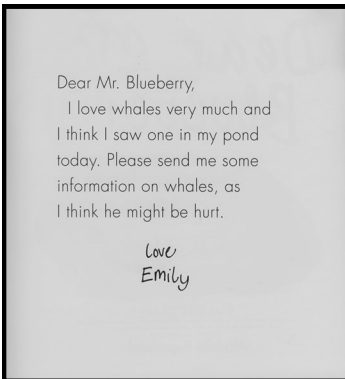 Dear Mr. Blueberry,
I love whales very much and
I think I saw one in my pond
today. Please send me some
information on whales, as
I think he might be hurt.
love
Emily